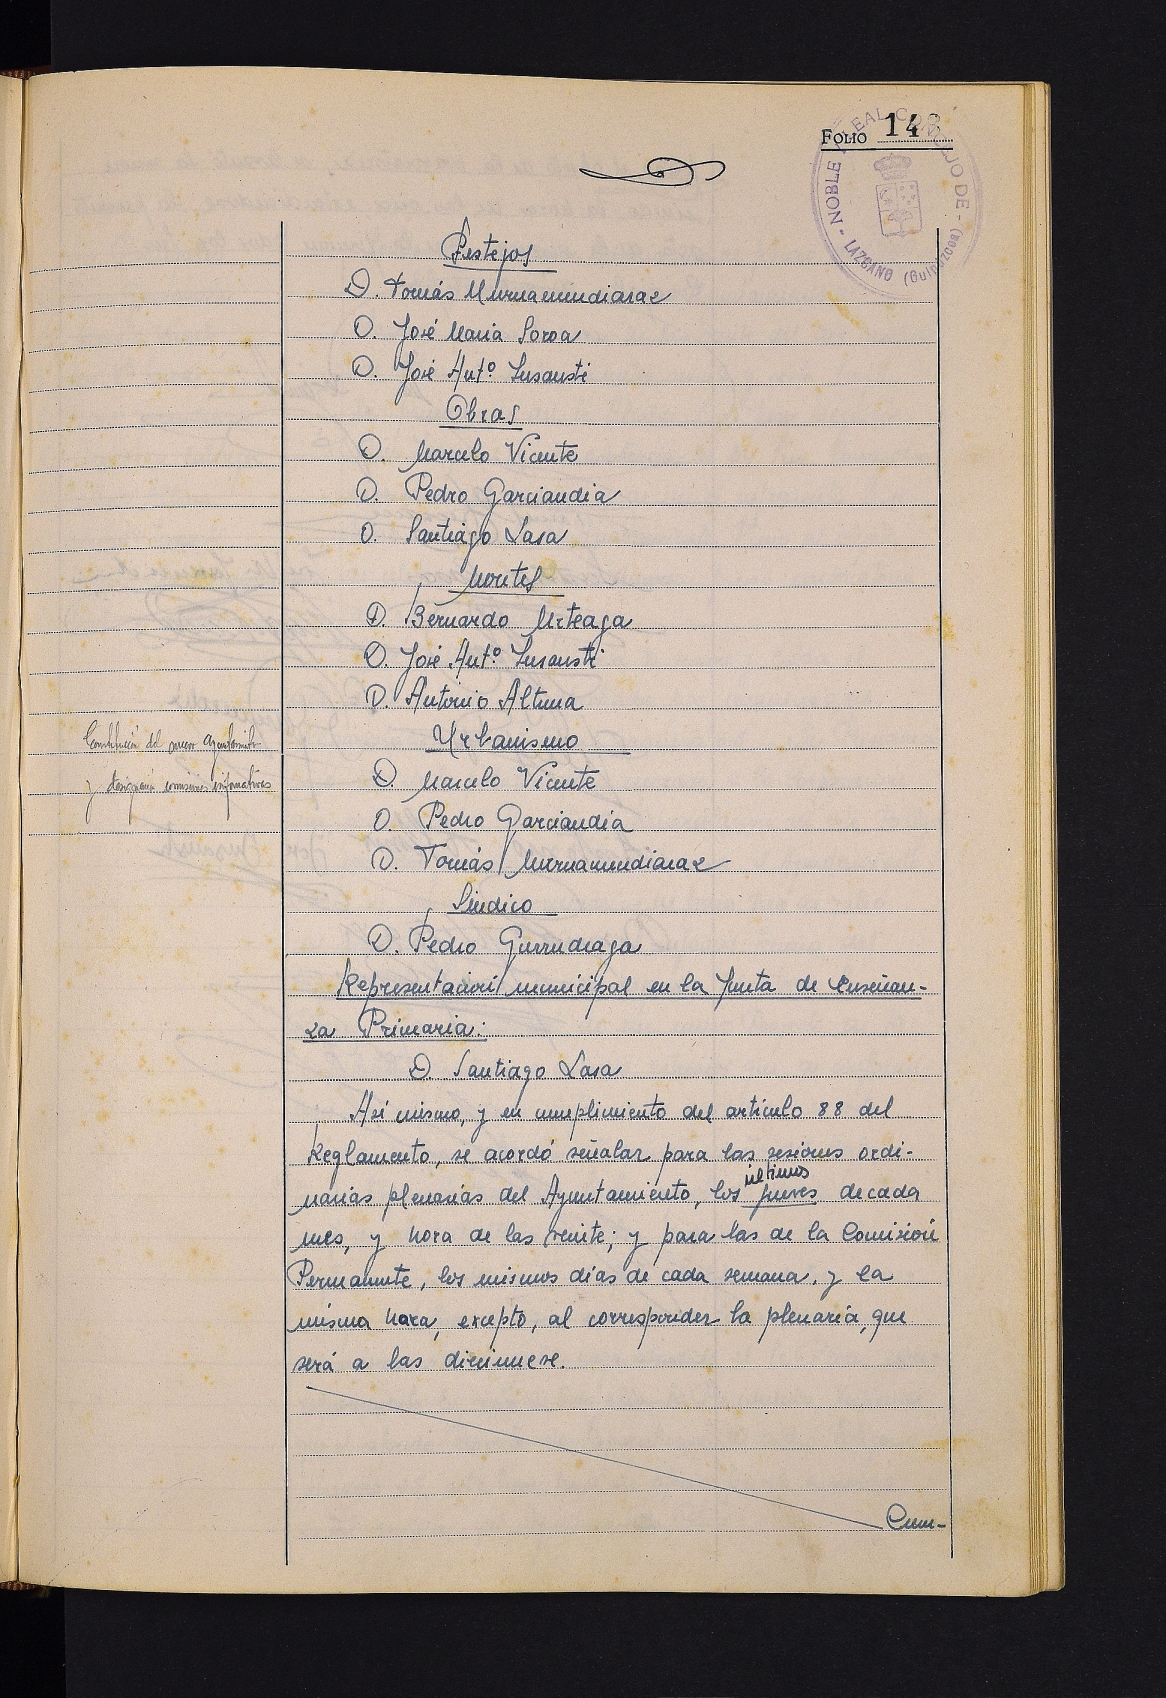 FOLIO 148
NOBLE Y LEAL CONCEJO DE - LAZCANO (Guipuzcoa) -
Festejos
D. Tomás Murnamendiaraz
D. José Maria Soroa
D. José Antº Insausti
Obras
D. Marcelo Vicente
D. Pedro Garciandia
D. Santiago Lasa
Montes
D. Bernardo Urteaga
D. José Antº Insausti
D. Antonio Altuna
Urbanismo
Constitución del nuevo Ayuntamiento
y designación comisiones informativas
D. Marcelo Vicente
D. Pedro Garciandia
D. Tomás Murnamendiaraz
Síndico
D. Pedro Gurrudiaga
Representación municipal en la Junta de Enseñan-
za Primaria:
D. Santiago Lasa
Asi mismo, y en cumplimiento del artículo 88 del
Reglamento, se acordó señalar para las sesiones ordi-
últimos
narias plenarias del Ayuntamiento, los jueves de cada
mes, y hora de las veinte; y para las de la Comisión
Permanente, los mismos días de cada semana. y la
misma hora, excepto, al corresponder la plenaria, que
será a las diecinueve.
Cum-